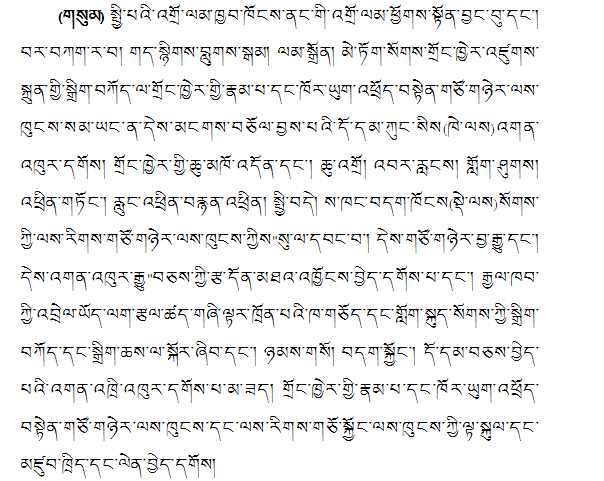 (གསུམ) སྤྱི་པའི་འགྲོ་ལམ་ཁྱབ་ཁོངས་ནང་གི་འགྲོ་ལམ་ཕྱོགས་སྟོན་བྱང་བུ་དང་།
བར་བཀག་ར་བ། གད་སྙིགས་བླུགས་སྒམ། ལམ་སྒྲོན། མེ་ཏོག་སོགས་གྲོང་ཁྱེར་འཛུགས་
སྐྲུན་གྱི་སྒྲིག་བཀོད་ལ་གྲོང་ཁྱེར་གྱི་རྣམ་པ་དང་ཁོར་ཡུག་འཕྲོད་བསྟེན་གཙོ་གཉེར་ལས་
ཁུངས་སམ་ཡང་ན་དེས་མངགས་བཅོལ་བྱས་པའི་དོ་དམ་ཀུང་སིས(ཁེ་ལས)འགན་
འཁུར་དགོས། གྲོང་ཁྱེར་གྱི་ཆུ་མཁོ་འདོན་དང་། ཆུ་འགྲོ། འབར་རླངས། གློག་ཤུགས།
འཕྲིན་གཏོང་། རླུང་འཕྲིན་བརྙན་འཕྲིན། སྤྱི་བདེ། ས་ཁང་བདག་ཁོངས(སྡེ་ལས)སོགས་
ཀྱི་ལས་རིགས་གཙོ་གཉེར་ལས་ཁུངས་ཀྱིས"སུ་ལ་དབང་བ། དེས་གཙོ་གཉེར་བྱ་རྒྱུ་དང་།
དེས་འགན་འཁུར་རྒྱུ"བཅས་ཀྱི་རྩ་དོན་མཐའ་འཁྱོངས་བྱེད་དགོས་པ་དང་། རྒྱལ་ཁབ་
ཀྱི་འབྲེལ་ཡོད་ལག་རྩལ་ཚད་གཞི་ལྟར་ཁྲོན་པའི་ཁ་གཅོད་དང་གློག་སྐུད་སོགས་ཀྱི་སྒྲིག་
བཀོད་དང་སྒྲིག་ཆས་ལ་སྐོར་ཞིབ་དང་། ཉམས་གསོ། བདག་སྐྱོང་། དོ་དམ་བཅས་བྱེད་
པའི་འགན་འཁྲི་འཁུར་དགོས་པ་མ་ཟད། གྲོང་ཁྱེར་གྱི་རྣམ་པ་དང་ཁོར་ཡུག་འཕྲོད་
བསྟེན་གཙོ་གཉེར་ལས་ཁུངས་དང་ལས་རིགས་གཙོ་སྐྱོང་ལས་ཁུངས་ཀྱི་ལྟ་སྐུལ་དང་
མཛུབ་ཁྲིད་དང་ལེན་བྱེད་དགོས།